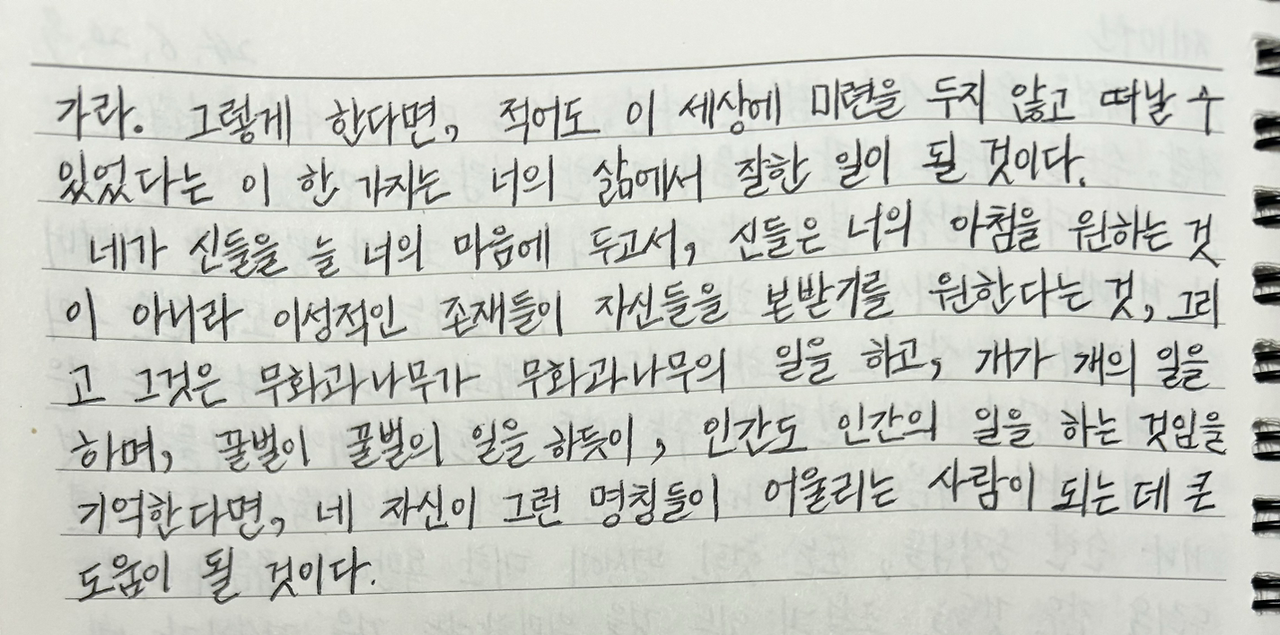 가라. 그렇게 한다면, 적어도 이 세상에 미련을 두지 않고 떠날 수
있었다는 이 한 가지는 너의 삶에서 잘한 일이 될 것이다.
네가 신들을 늘 너의 마음에 두고서, 신들은 너의 아첨을 원하는 것
이 아니라 이성적인 존재들이 자신들을 본받기를 원한다는 것, 그리
고 그것은 무화과나무가 무화과나무의 일을 하고, 개가 개의 일을
하며, 꿀벌이 꿀벌의 일을 하듯이, 인간도 인간의 일을 하는 것임을
기억한다면, 네 자신이 그런 명칭들이 어울리는 사람이 되는 데 큰
도움이 될 것이다.